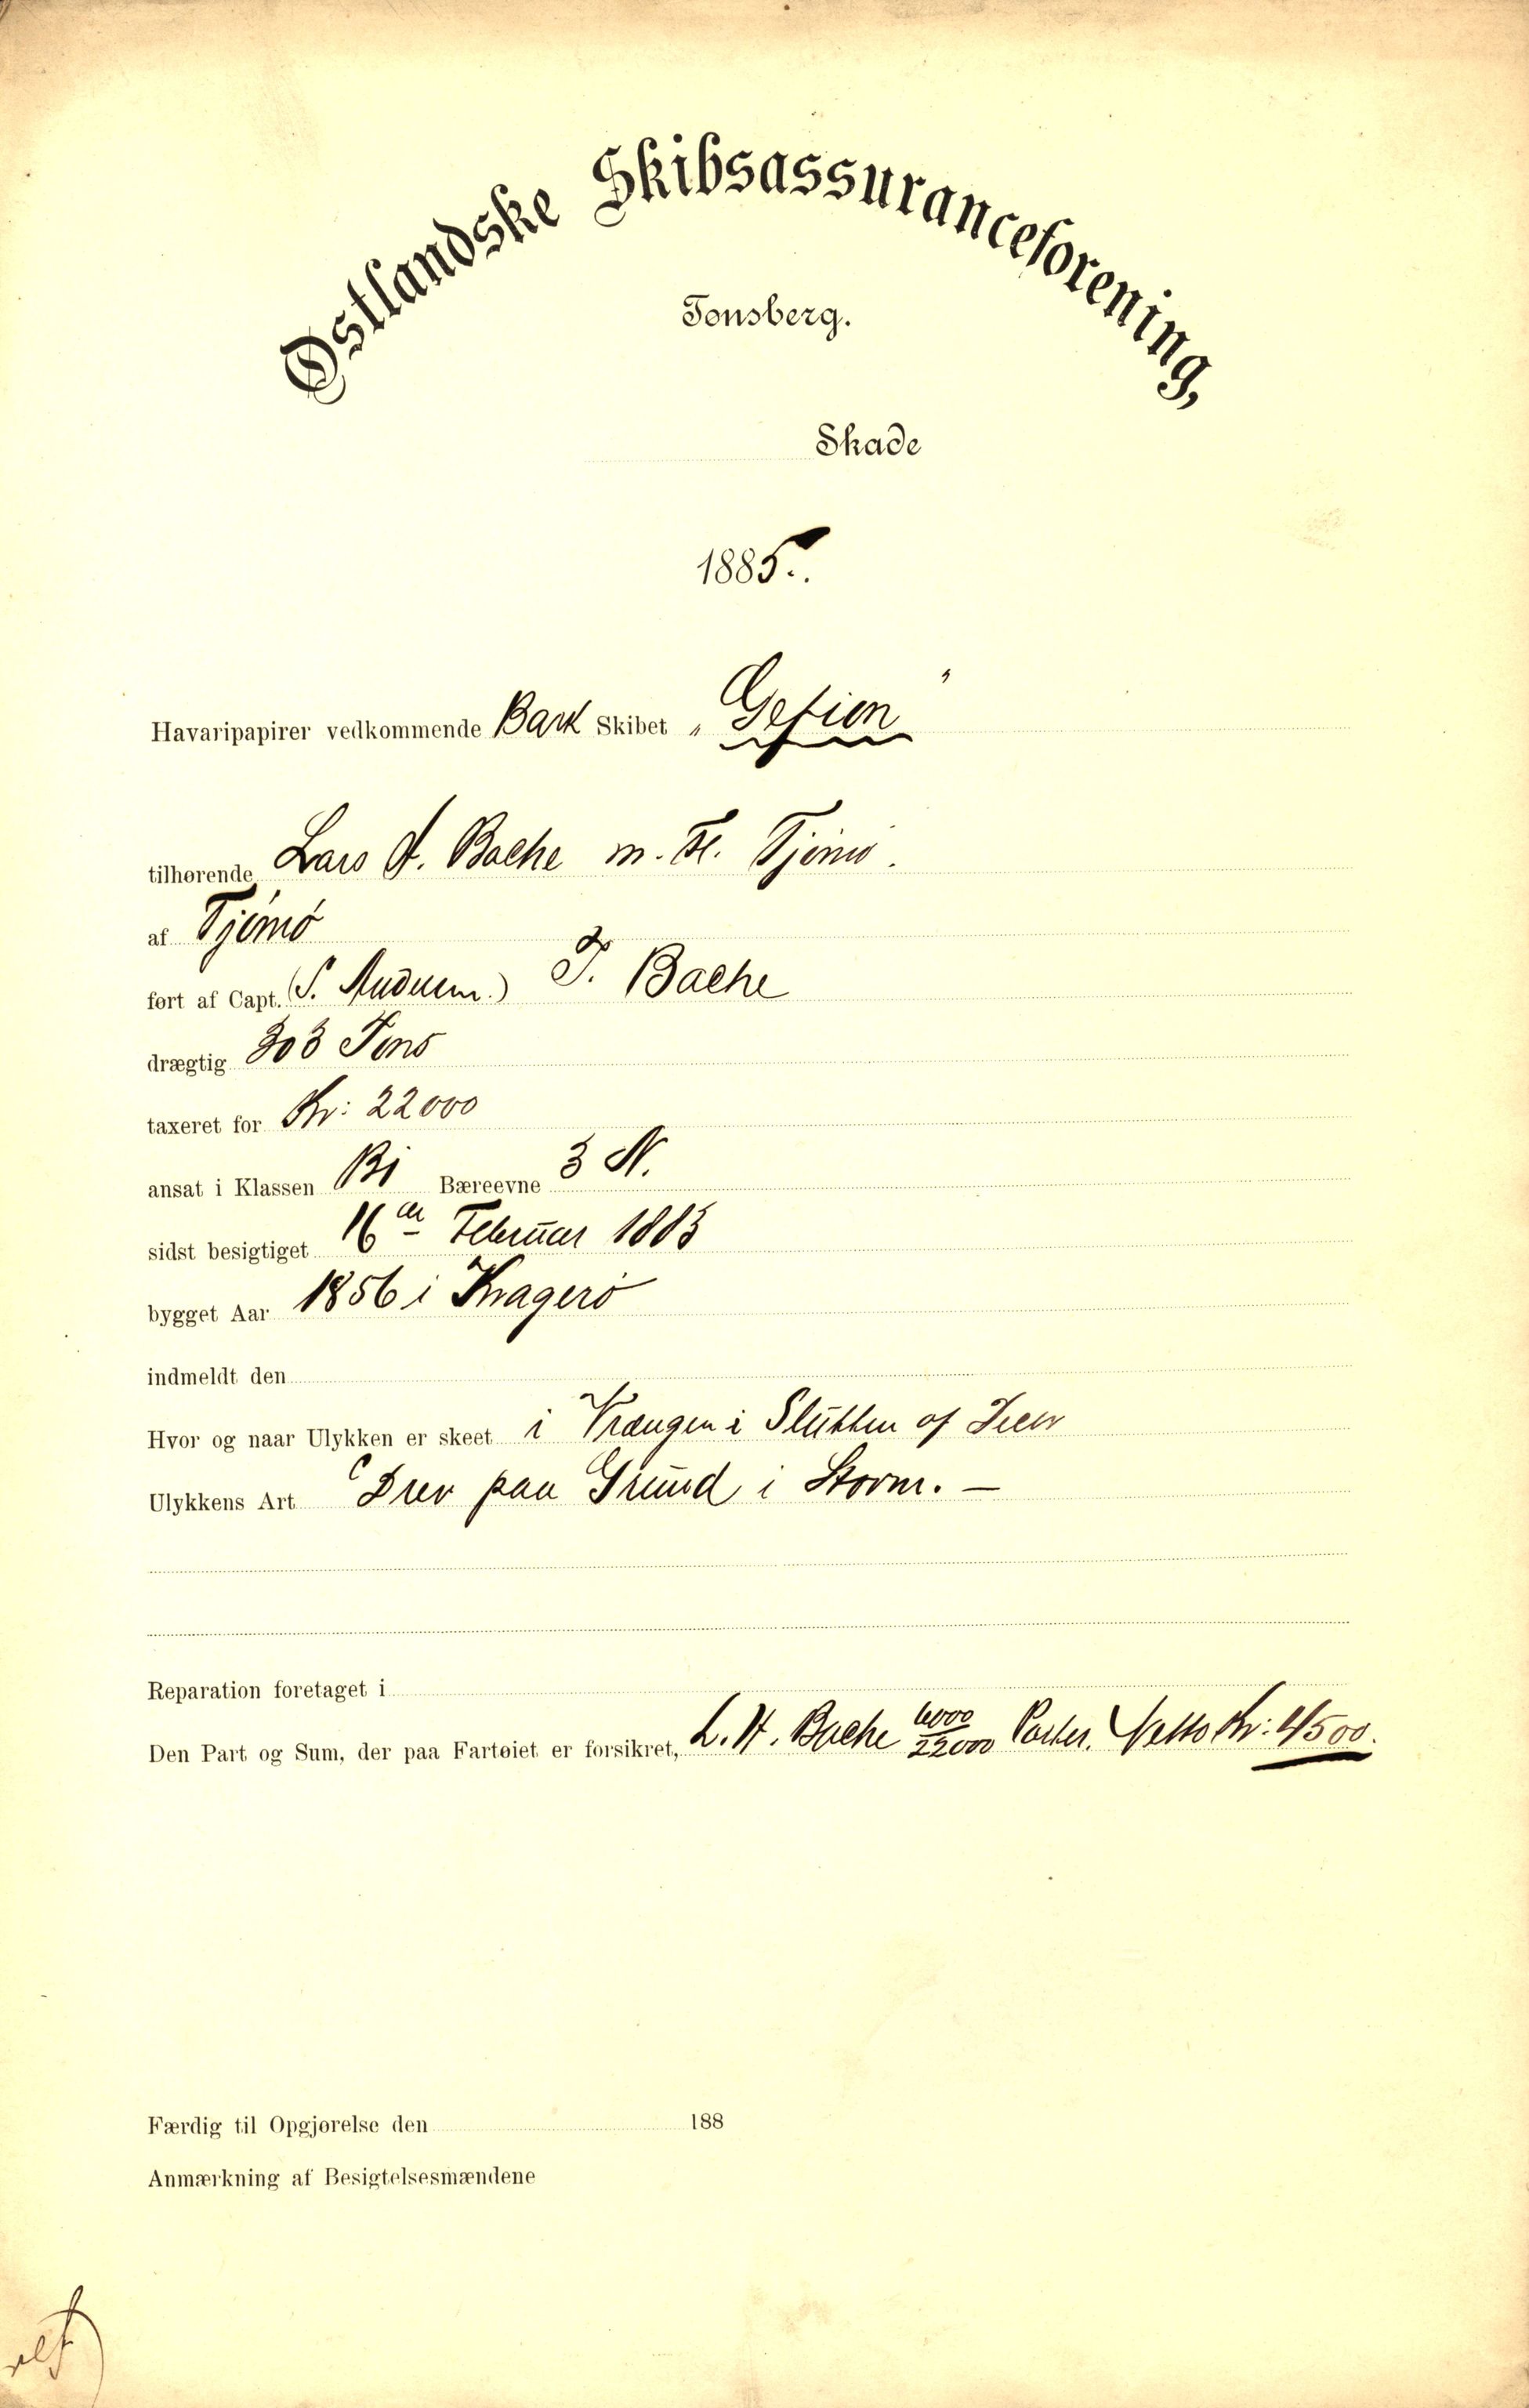 Østlandske Skibsassuranceforening,
Tønsberg.
Skade
1885.
Havaripapirer vedkommende Bark Skibet „Gefion"
tilhørende Lars H. Bache m. Fl. Tjömö.
af Tjömö
ført af Capt. (S. Andersen.) T. Bache
drægtig 303 Tons
taxeret for Kr: 22000
ansat i Klassen B1 Bæreevne 3 N.
sidst besigtiget 16de Februar 1883
bygget Aar 1856 i Kragerö
indmeldt den
Hvor og naar Ulykken er skeet i Vrængen i Slutten af
Ulykkens Art Drev paa Grund i Storm. —
Reparation foretaget i
Den Part og Sum, der paa Fartøiet er forsikret, L. H. Bache 6000/22000 Parter. Netto Kr: 4500.
Færdig til Opgjørelse den 188
Anmærkning af Besigtelsesmændene